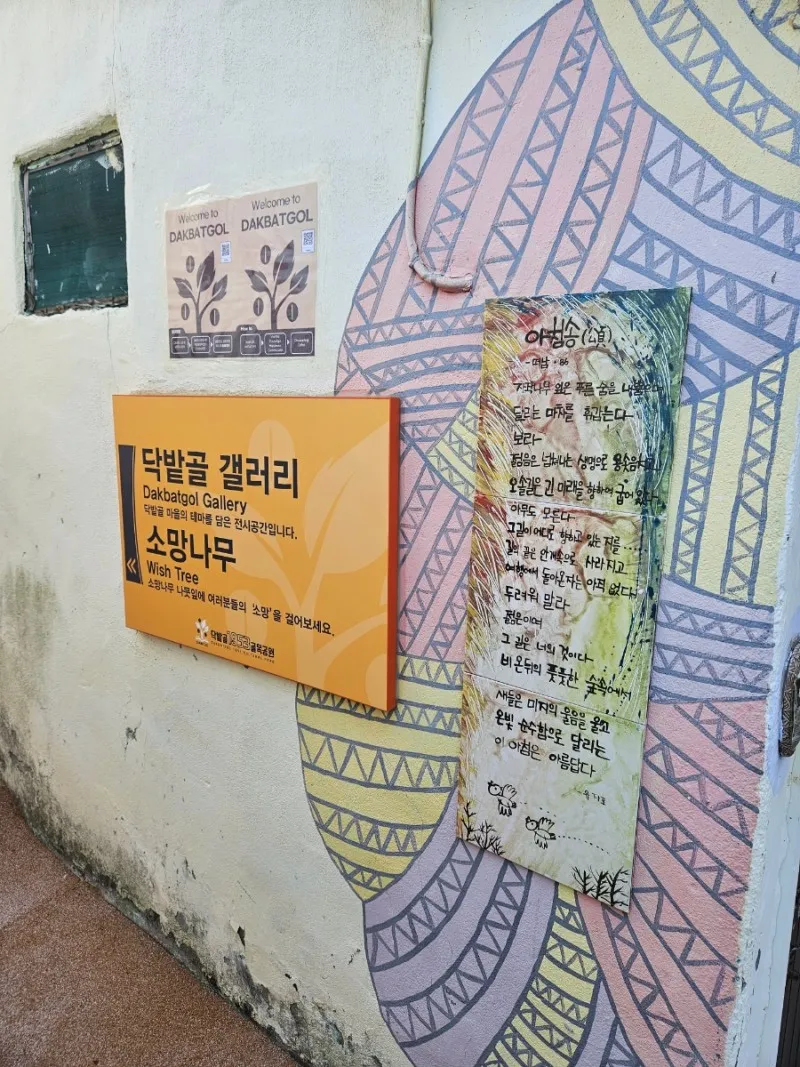 Welcome to
DAKBATGOL
Welcome to
DAKBATGOL
닥밭골 갤러리
Dakbatgol Gallery
닥밭골 마을의 테마를 담은 전시공간입니다.
소망나무
Wish Tree
소망나무 나뭇잎에 여러분들의 '소망'을 걸어보세요.
닥밭골1953골목공원
아침송(頌)
자작나무 잎은 푸른 숨을 내뿜으며
달리는 마차를 휘감는다
보라
젊음은 넘쳐나는 생명으로 용솟음치고
오솔길은 긴 미래를 향하여 굽어 있다
아무도 모른다
그길이 어디로 향하고 있는지를.....
길의 끝은 안개속으로 사라지고
여행에서 돌아온자는 아직 없다
두려워 말라
젊은이여
그 길은 너의 것이다
비온뒤의 풋풋한 숲속에서
새들은 미지의 울음을 울고
은빛 순수함으로 달리는
이 아침은 아름답다